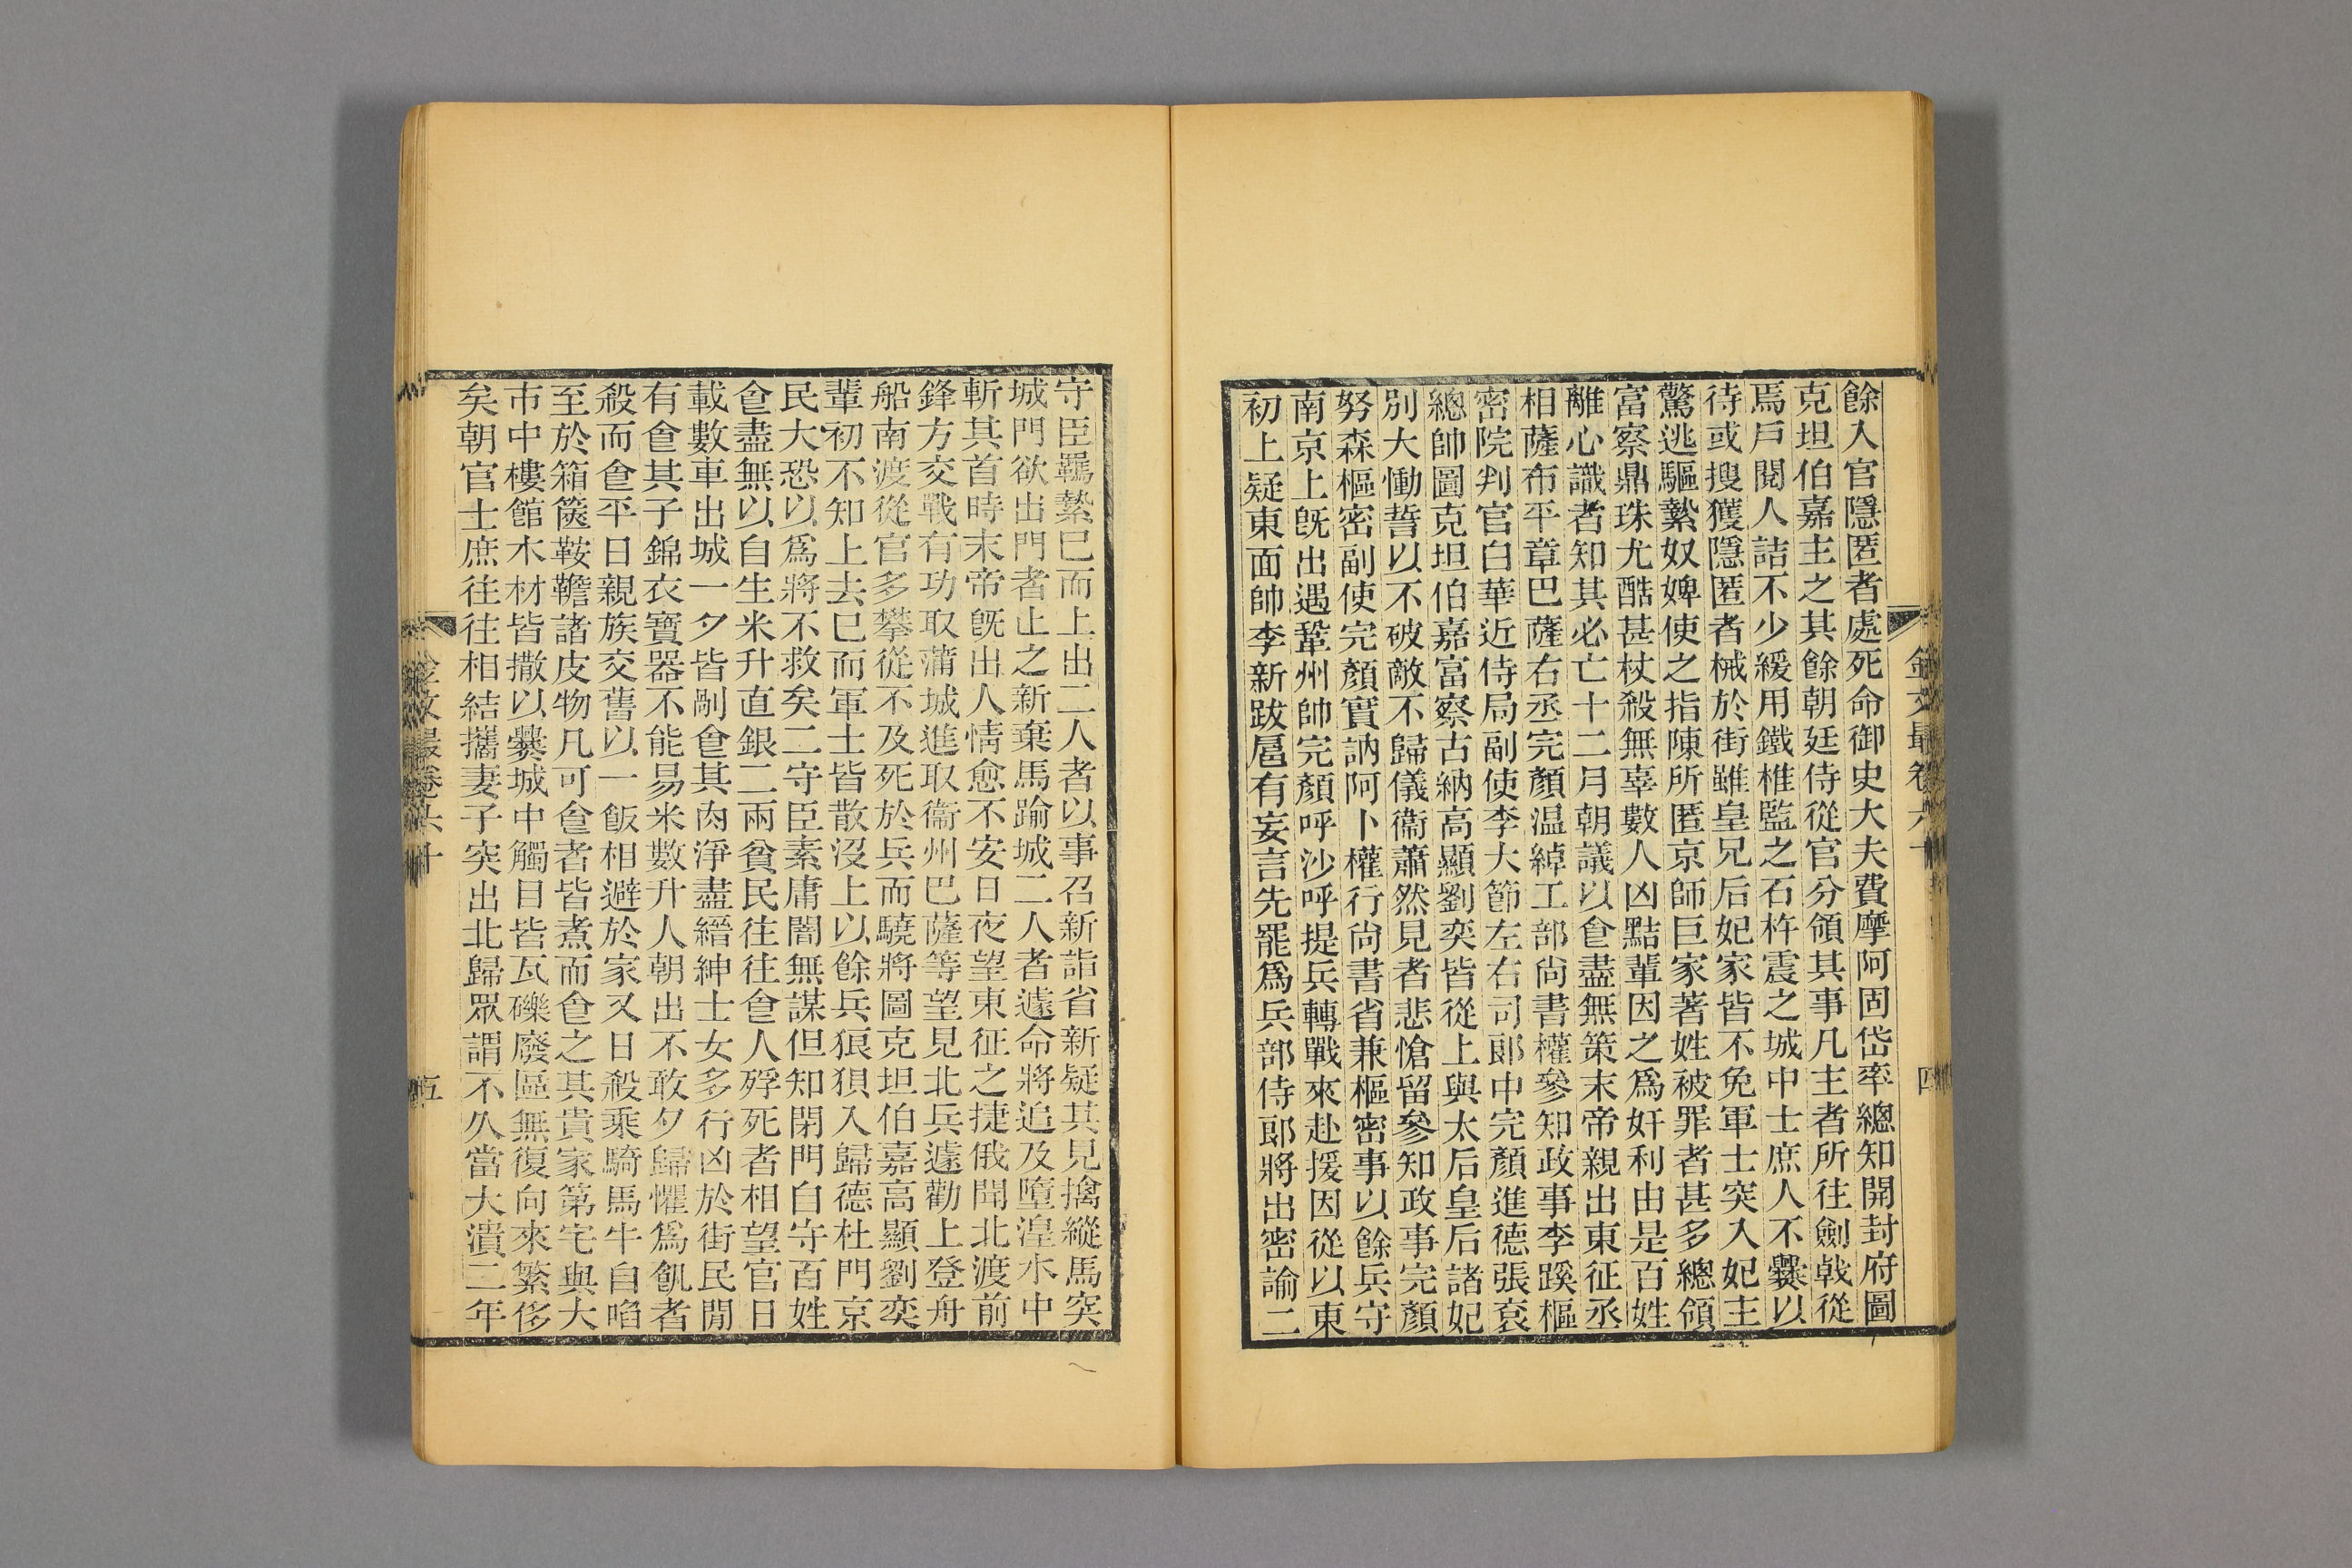 餘入官隱匿者處死命御史大夫費摩阿固岱率總知開封府圖
克坦伯嘉主之其餘朝廷侍從官分領其事凡主者所往劍戟從
焉戶閱人詰不少緩用鐵椎監之石杵震之城中士庶人不爨以
待或搜獲隱匿者械於街雖皇兄后妃家皆不免軍士突入妃主
驚逃驅縶奴婢使之指陳所匿京師巨家著姓被罪者甚多總領
富察鼎珠尤酷甚杖殺無辜數人凶黠輩因之爲奸利由是百姓
離心識者知其必亡十二月朝議以食盡無策末帝親出東征丞
相薩布平章巴薩右丞完顏温綽工部尚書權參知政事李蹊樞
密院判官白華近侍局副使李大節左右司郞中完顏進德張袞
總帥圖克坦伯嘉富察古納高顯劉奕皆從上與太后皇后諸妃
別大慟誓以不破敵不歸儀衞蕭然見者悲愴留參知政事完顏
努森樞密副使完顏實訥阿卜權行尚書省兼樞密事以餘兵守
南京上旣出遇鞏州帥完顏呼沙呼提兵轉戰來赴援因從以東
初上疑東面帥李新跋扈有妄言先罷爲兵部侍郞將出密諭二
金文最卷六十
四
守臣羈縶已而上出二人者以事召新詣省新疑其見擒縱馬突
城門欲出門者止之新棄馬踰城二人者遽命將追及墮湟水中
斬其首時末帝旣出人情愈不安日夜望東征之捷俄聞北渡前
鋒方交戰有功取蒲城進取衞州巴薩等望見北兵遽勸上登舟
船南渡從官多攀從不及死於兵而驍將圖克坦伯嘉高顯劉奕
輩初不知上去已而軍士皆散沒上以餘兵狼狽入歸德杜門京
民大恐以爲將不救矣二守臣素庸闇無謀但知閉門自守百姓
食盡無以自生米升直銀二兩貧民往往食人殍死者相望官日
載數車出城一夕皆剮食其肉淨盡縉紳士女多行匃於街民閒
有食其子錦衣寶器不能易米數升人朝出不敢夕歸懼爲飢者
殺而食平日親族交舊以一飯相避於家又日殺乘騎馬牛自啗
至於箱篋鞍韂諸皮物凡可食者皆煮而食之其貴家第宅與大
市中樓館木材皆撒以爨城中觸目皆瓦礫廢區無復向來繁侈
矣朝官士庶往往相結攜妻子突出北歸眾謂不久當大潰二年
金文最卷六十
五